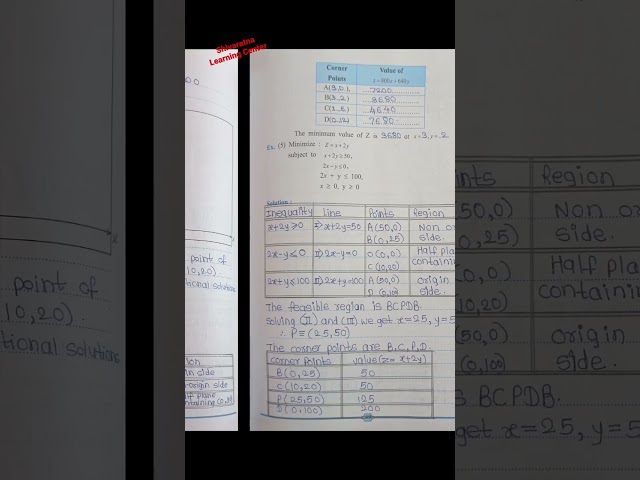 Shivaratna
Learning Center
Corner Points | Value of z = 800x + 640y
A(9,0) | 7200
B(3,2) | 3680
C(1,6) | 4640
D(0,12) | 7680
The minimum value of Z is 3680 at x = 3, y = 2
Ex. (5) Minimize : Z = x + 2y
subject to x + 2y ≥ 50,
2x - y ≤ 0,
2x + y ≤ 100,
x ≥ 0, y ≥ 0
Solution :
Inequality | Line | Points | Region
x+2y≥0 | I> x+2y=50 | A(50,0) B(0,25) | Non o side.
2x-y≤0 | II) 2x-y=0 | O(0,0) C(10,20) | Half pla containin
2x+y≤100 | III) 2x+y=100 | A(50,0) D(0,100) | origin side.
The feasible region is BCPDB.
Solving (II) and (III) we get x=25, y=5
∴ P≡(25,50)
The corner points are B,C,P,D.
Corner points | value (z= x+2y)
B(0,25) | 50
C(10,20) | 50
P(25,50) | 125
D(0,100) | 200
point of
(10,20)
tional solutions
ion
in side
origin side
lf plane
ntaining
ints | Region
50,0) | Non o
0,25) | side.
0,0) | Half pla
10,20) | containin
50,0) | origin
0,100) | side.
s BCPDB.
get x=25, y=5
point of
10,20).
tional solutions